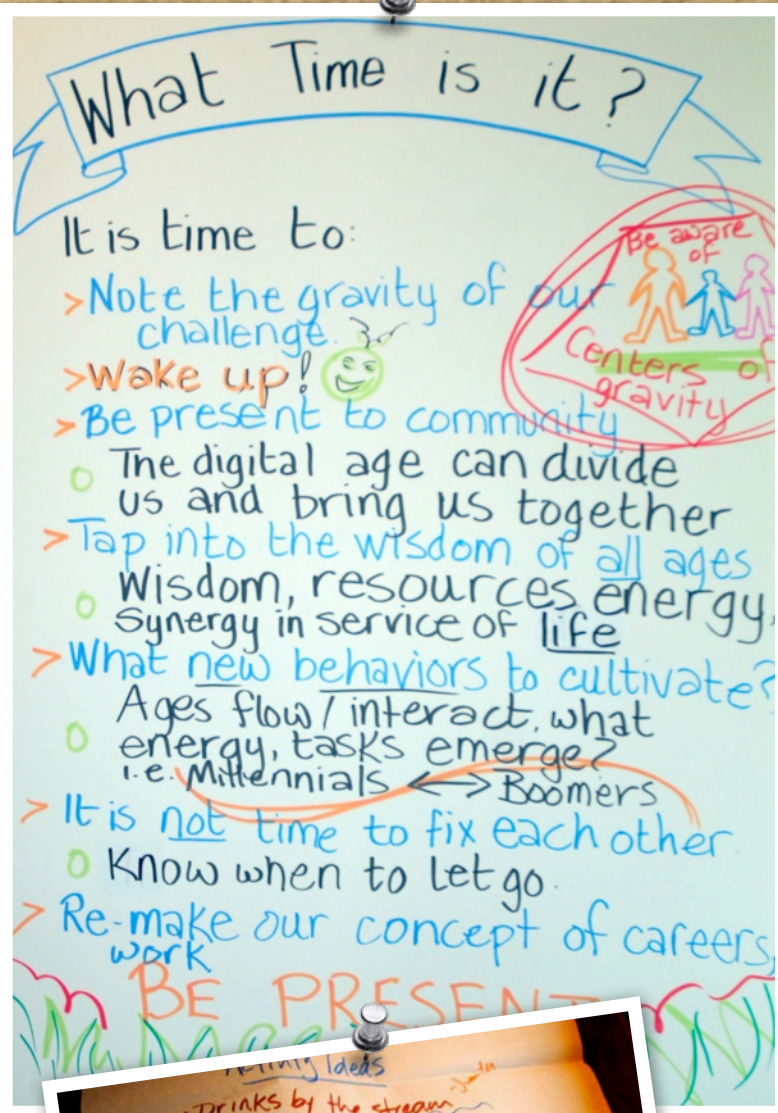 What Time is it?
It is time to:
Be aware
of
Centers of
gravity
>Note the gravity of our
challenge.
>Wake up!
>Be present to community
The digital age can divide
us and bring us together
>Tap into the wisdom of all ages
Wisdom, resources, energy,
Synergy in service of life
>What new behaviors to cultivate?
Ages flow/interact, what
energy, tasks emerge?
i.e. Millennials <-> Boomers
> It is not time to fix each other
Know when to let go.
> Re-make our concept of careers,
work
BE PRESENT
Ideas
Drinks by the stream